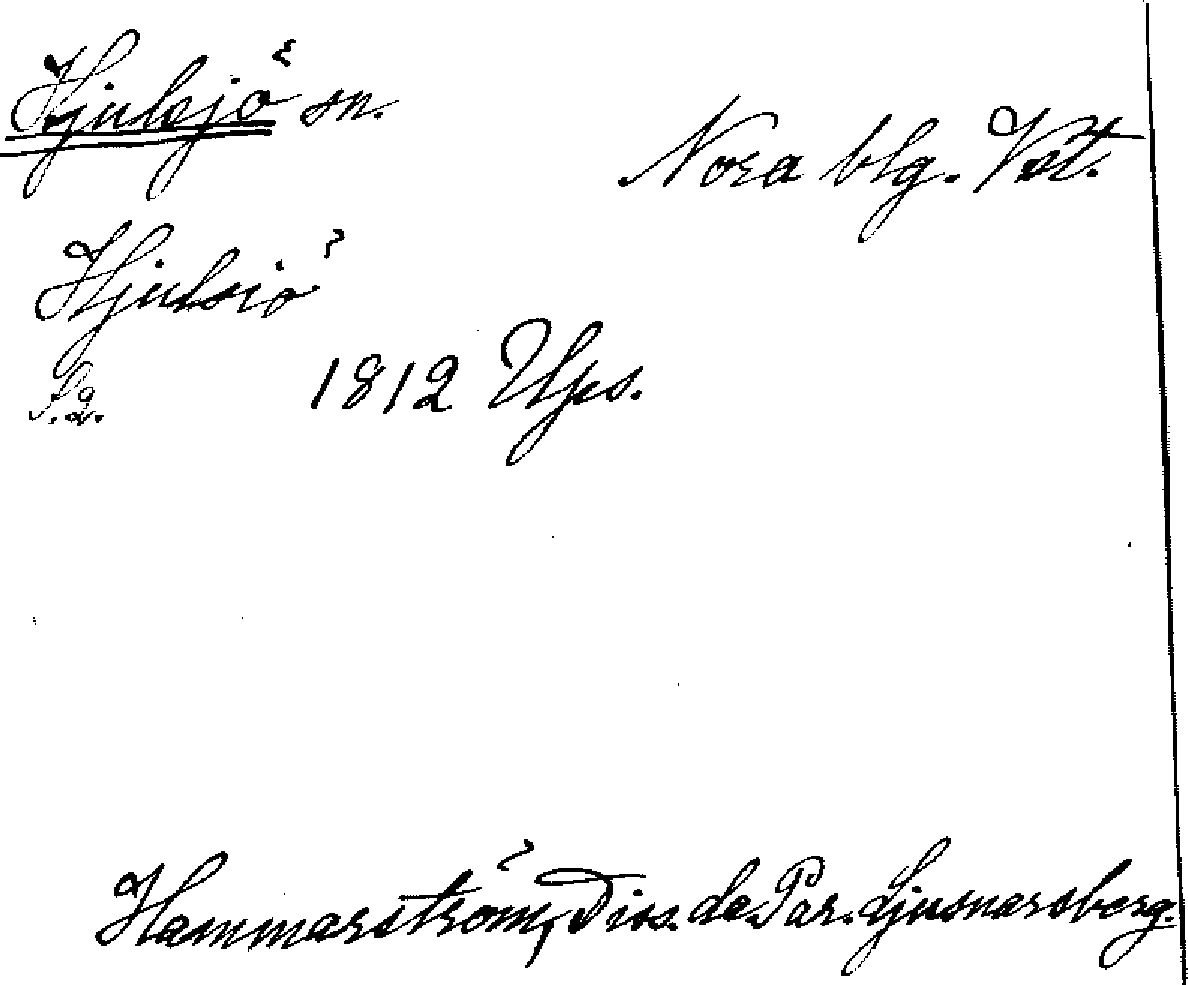 Hjulsjö sn.
Nora blg. Vstm.
Hjulsiö
S.2. 1812 Ups.
Hammarström, Diss. de Par. Ljusnarsberg.